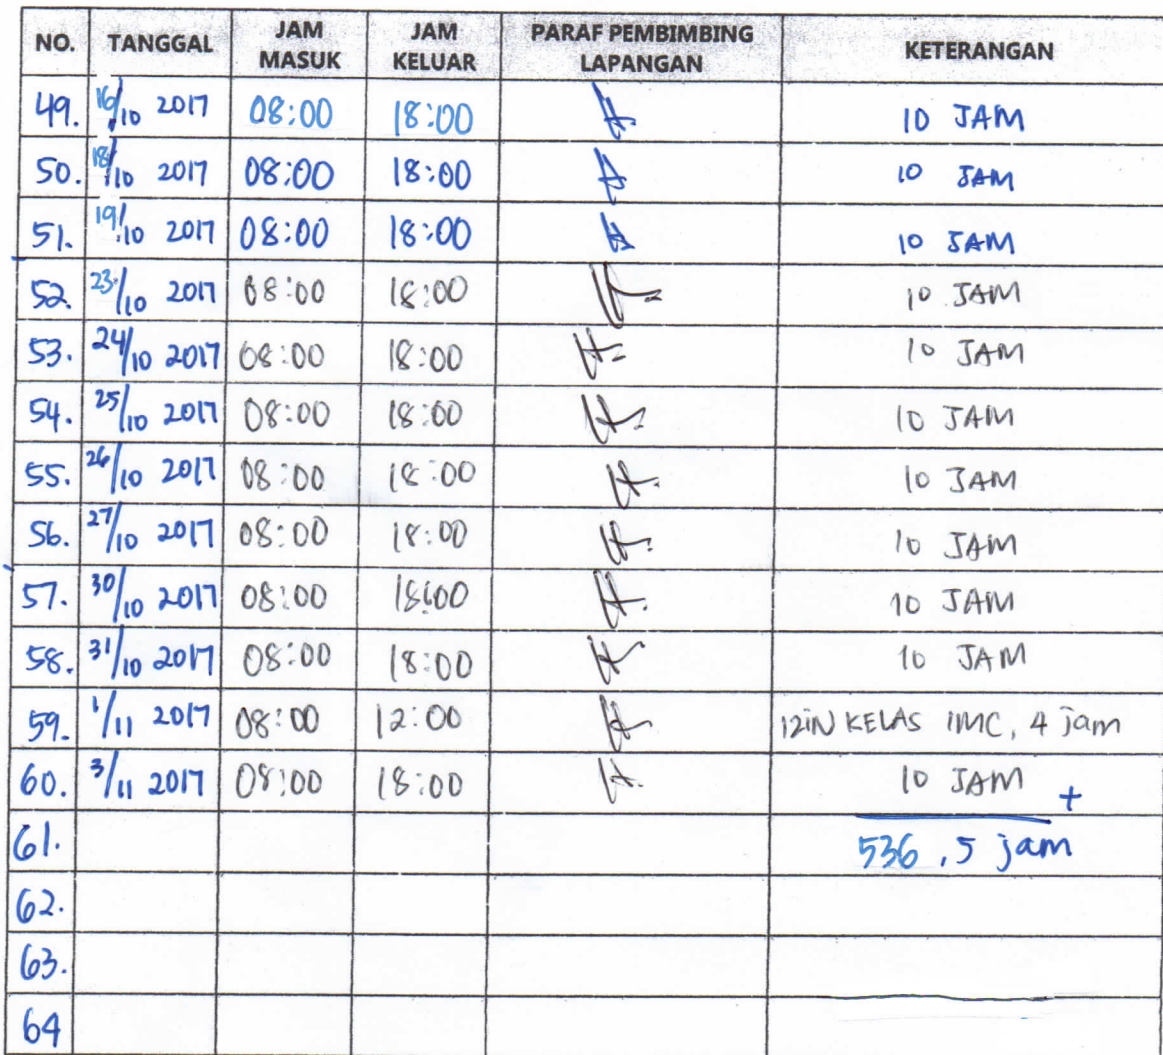 NO. TANGGAL JAM MASUK JAM KELUAR PARAF PEMBIMBING LAPANGAN KETERANGAN
49. 16/10 2017 08:00 18:00 10 JAM
50. 18/10 2017 08:00 18:00 10 JAM
51. 19/10 2017 08:00 18:00 10 JAM
52. 23/10 2017 08:00 18:00 10 JAM
53. 24/10 2017 08:00 18:00 10 JAM
54. 25/10 2017 08:00 18:00 10 JAM
55. 26/10 2017 08:00 18:00 10 JAM
56. 27/10 2017 08:00 18:00 10 JAM
57. 30/10 2017 08:00 18:00 10 JAM
58. 31/10 2017 08:00 18:00 10 JAM
59. 1/11 2017 08:00 12:00 IZIN KELAS IMC, 4 jam
60. 3/11 2017 08:00 18:00 10 JAM +
61. 536,5 jam
62.
63.
64